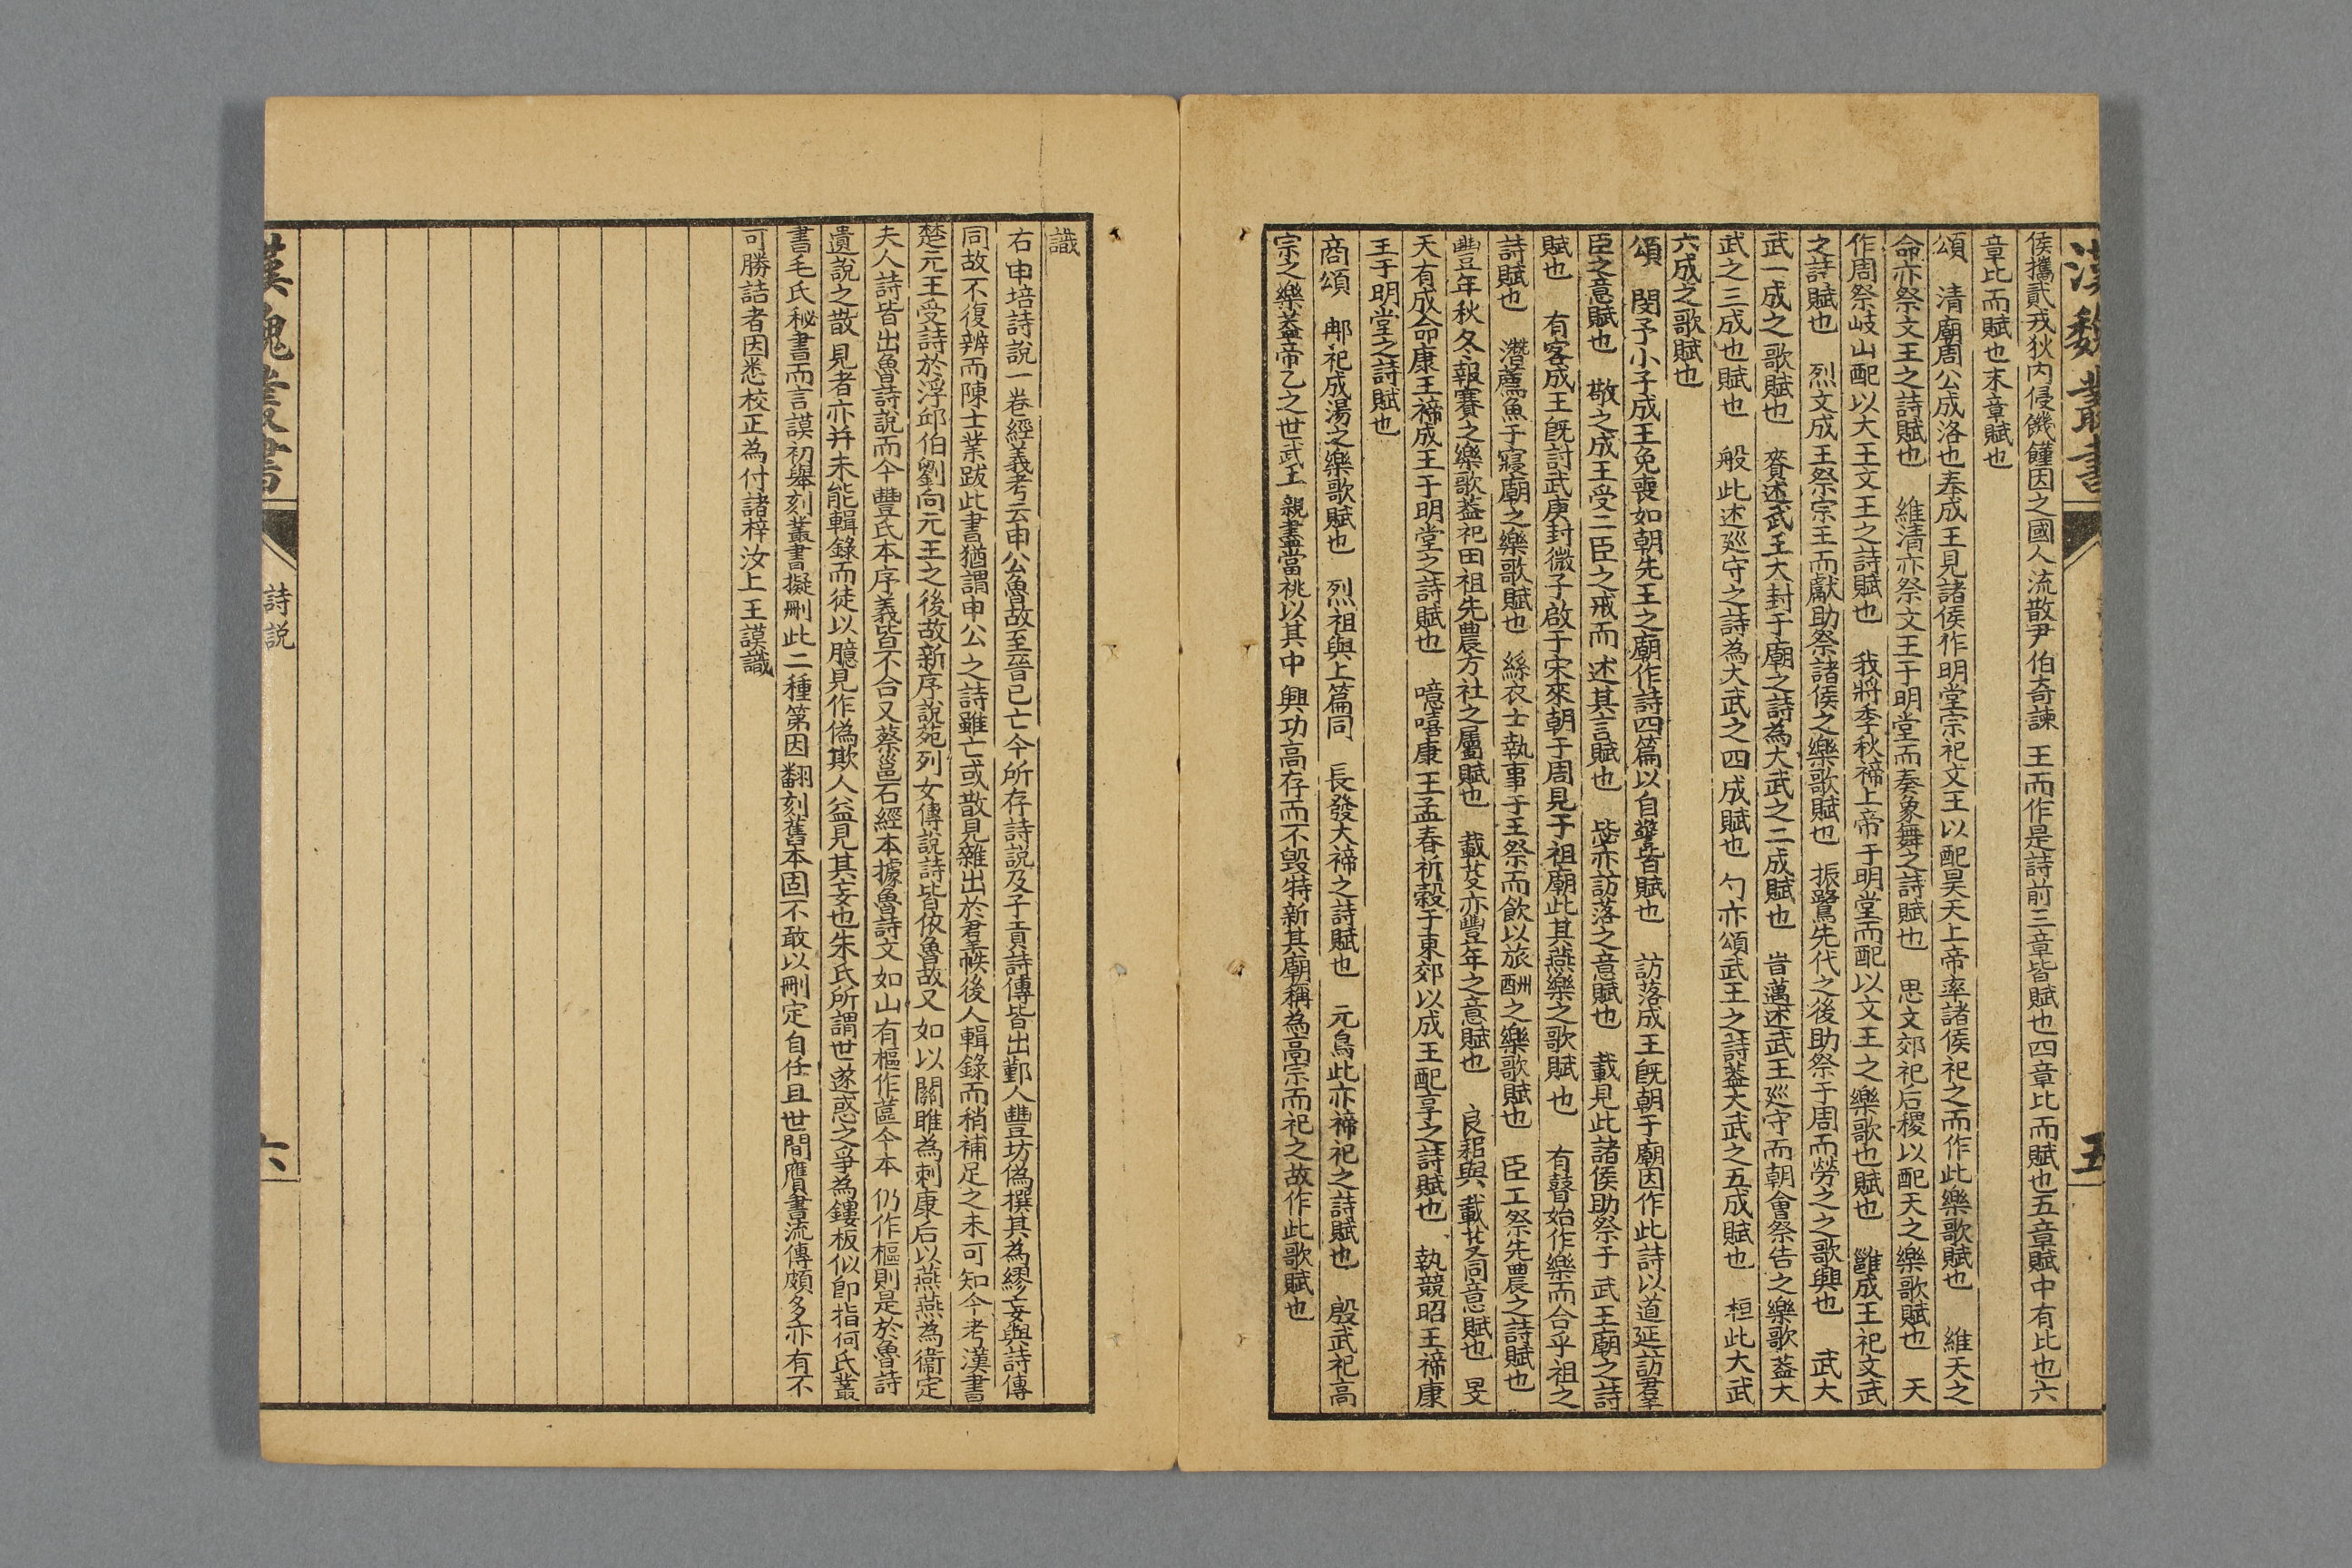 漢魏叢書
五
侯攜貳戎狄內侵饑饉因之國人流散尹伯奇諫王而作是詩前三章皆賦也四章比而賦也五章賦中有比也六
章比而賦也末章賦也
頌　清廟周公成洛也奉成王見諸侯作明堂宗祀文王以配昊天上帝率諸侯祀之而作此樂歌賦也　維天之
命亦祭文王之詩賦也　維清亦祭文王于明堂而奏象舞之詩賦也　思文郊祀后稷以配天之樂歌賦也　天
作周祭岐山配以大王文王之詩賦也　我將季秋禘上帝于明堂而配以文王之樂歌也賦也　雝成王祀文武
之詩賦也　烈文成王祭宗王而獻助祭諸侯之樂歌賦也　振鷺先代之後助祭于周而勞之之歌興也　武大
武一成之歌賦也　賚述武王大封于廟之詩為大武之二成賦也　旹邁述武王巡守而朝會祭告之樂歌葢大
武之三成也賦也　般此述巡守之詩為大武之四成賦也　勺亦頌武王之詩葢大武之五成賦也　桓此大武
六成之歌賦也
頌　閔予小子成王免喪如朝先王之廟作詩四篇以自警皆賦也　訪落成王旣朝于廟因作此詩以道延訪羣
臣之意賦也　敬之成王受二臣之戒而述其言賦也　毖亦訪落之意賦也　載見此諸侯助祭于武王廟之詩
賦也　有客成王旣討武庚封微子啟于宋來朝于周見于祖廟此其燕樂之歌賦也　有瞽始作樂而合乎祖之
詩賦也　潛薦魚于寢廟之樂歌賦也　絲衣士執事于王祭而飲以旅酬之樂歌賦也　臣工祭先農之詩賦也
豐年秋冬報賽之樂歌葢祀田祖先農方社之屬賦也　載芟亦豐年之意賦也　良耜與載芟同意賦也　旻
天有成命康王禘成王于明堂之詩賦也　噫嘻康王孟春祈穀于東郊以成王配享之詩賦也　執競昭王禘康
王于明堂之詩賦也
商頌　郍祀成湯之樂歌賦也　烈祖與上篇同　長發大禘之詩賦也　元鳥此亦禘祀之詩賦也　殷武祀高
宗之樂葢帝乙之世武王親盡當祧以其中興功高存而不毀特新其廟稱為高宗而祀之故作此歌賦也
識
右申培詩說一卷經義考云申公魯故至晉已亡今所存詩說及子貢詩傳皆出鄞人豐坊偽撰其為繆妄與詩傳
同故不復辨而陳士業跋此書猶謂申公之詩雖亡或散見雜出於君臺帙後人輯錄而稍補足之未可知今考漢書
楚元王受詩於浮邱伯劉向元王之後故新序說苑列女傳說詩皆依魯故又如以關雎為刺康后以燕燕為衞定
夫人詩皆出魯詩說而今豐氏本序義皆不合又蔡邕石經本據魯詩文如山有樞作蓲今本仍作樞則是於魯詩
遺說之散見者亦幷未能輯錄而徒以臆見作偽欺人益見其妄也朱氏所謂世遂惑之爭為鏤板似卽指何氏叢
書毛氏秘書而言謨初舉刻叢書擬刪此二種第因翻刻舊本固不敢以刪定自任且世間贋書流傳頗多亦有不
可勝詰者因悉校正為付諸梓汝上王謨識
漢魏叢書
詩說
六